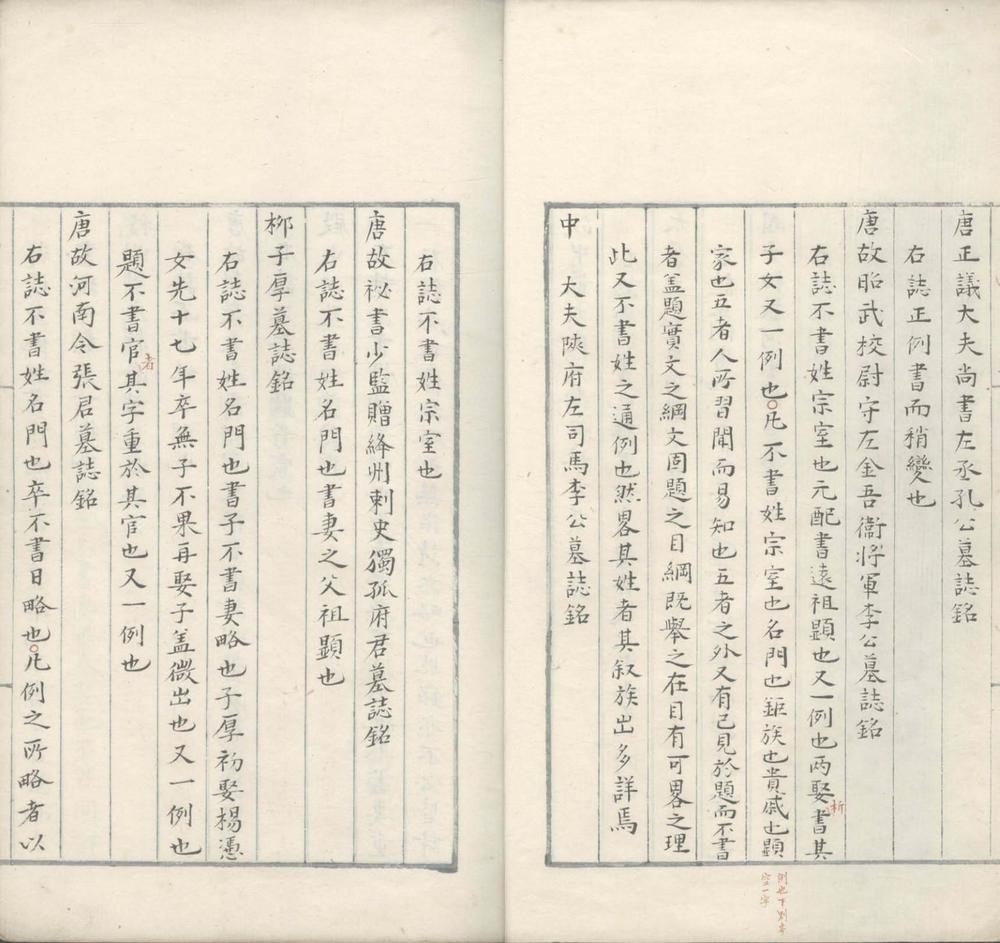 唐正議大夫尚書左丞孔公墓誌銘
右誌正例書而稍變也
唐故昭武校尉守左金吾衞將軍李公墓誌銘
右誌不書姓宗室也元配書遠祖顯也又一例也兩娶書其
析
子女又一例也○凡不書姓宗室也名門也鉅族也貴戚也顯
例也下別本
空一字
家也五者人所習聞而易知也五者之外又有已見於題而不書
者盖題實文之綱文固題之目綱既舉之在目有可畧之理
此又不書姓之通例也然畧其姓者其叙族出多詳焉
中 大夫陝府左司馬李公墓誌銘
右誌不書姓宗室也
唐故祕書少監贈絳州刺史獨孤府君墓誌銘
右誌不書姓名門也書妻之父祖顯也
栁子厚墓誌銘
右誌不書姓名門也書子不書妻略也子厚初娶楊憑
女先十七年卒無子不果再娶子盖微出也又一例也
題不書官其字重於其官也又一例也
者
唐故河南令張君墓誌銘
右誌不書姓名門也卒不書日略也○凡例之所略者以